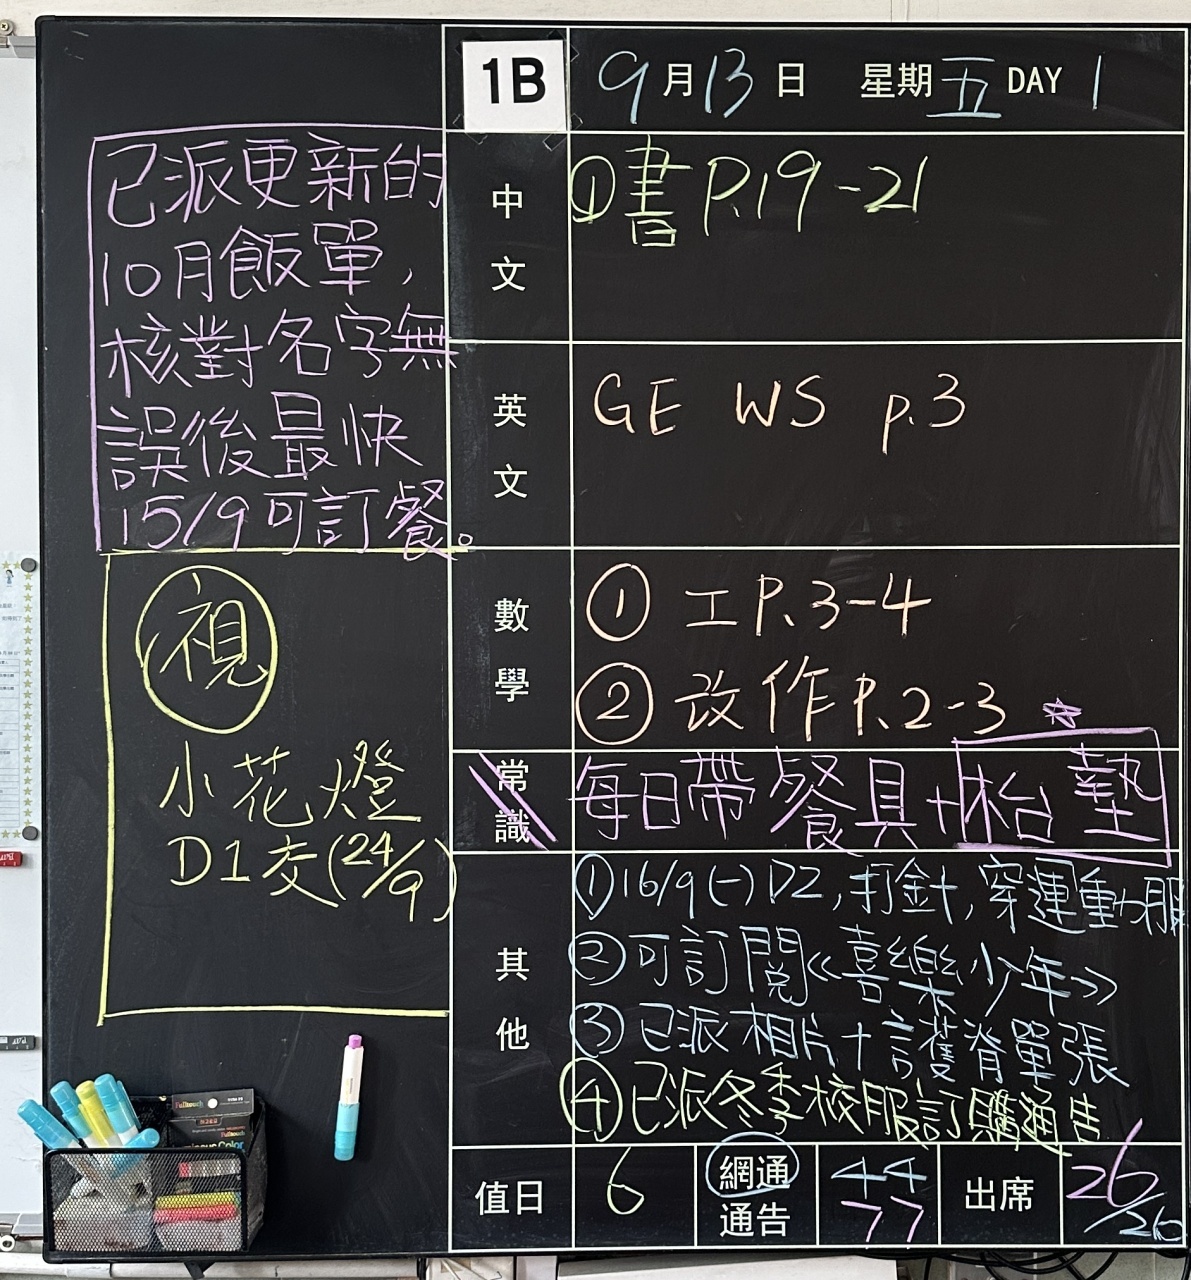 1B 9月13日 星期五 DAY 1
已派更新的
10月飯單,
核對名字無
誤後最快
15/9可訂餐。
視
小花燈
D1交(24/9)
中文
①書 P.19-21
英文
GE WS p.3
數學
① 工 P.3-4
② 改作 P.2-3
常識
每日帶餐具+枱墊
其他
①16/9(一)D2,打針,穿運動服
②可訂閱«喜樂少年»
③已派相片+護脊單張
④已派冬季校服訂購通告
值日 6 網通 44 出席 26/26
通告 77
Fulltouch